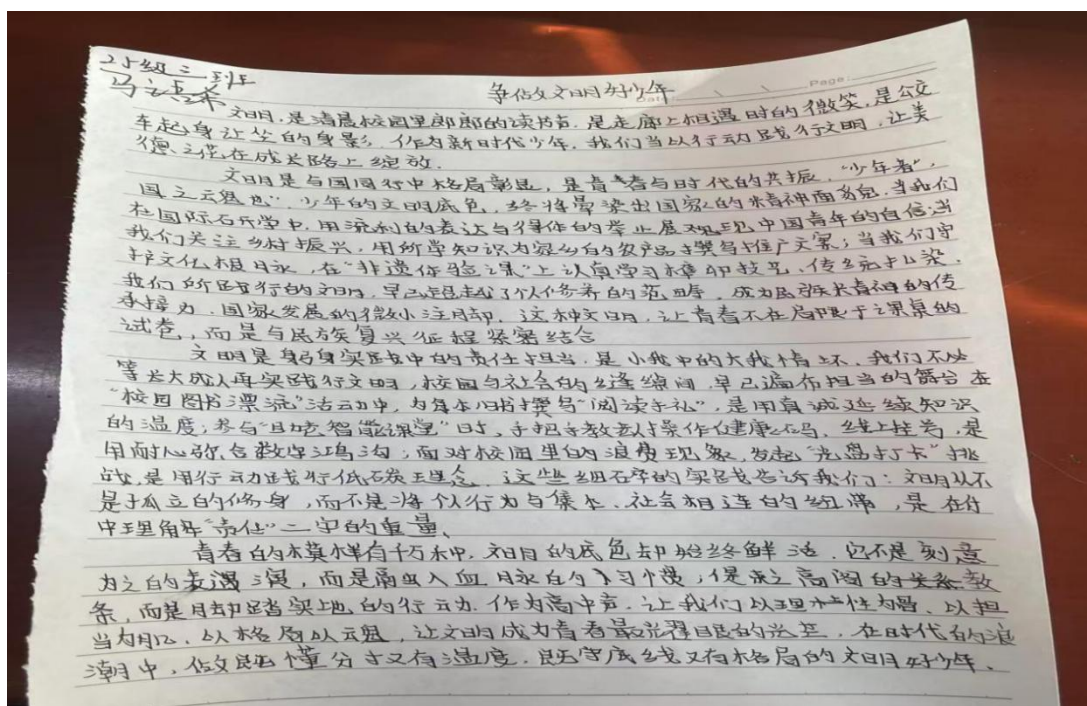 25级三班
争做文明好少年
Page:
Date:
文明,是清晨校园里郎郎的读书声,是走廊上相遇时的微笑,是公交
车起身让坐的身影,作为新时代少年,我们当以行动践行文明,让美
德之花在成长路上绽放.
文明是与国同行中格局彰显,是青春与时代的共振."少年者",
国之元魁也",少年的文明底色,终将晕染出国家的精神面貌.当我们
在国际石开学中,用流利的表达与得体的举止展现现中国青年的自信;当
我们关注乡村振兴,用所学知识为家乡的农产品撰写推广文案;当我们守
护文化根脉,在"非遗体验课"上认真学习榫卯技艺、传统扎染,
我们所践行的文明,早已超越了个人修养的范畴,成为民族精神的传
承接力,国家发展的微小注脚.这种文明,让青春不在局限于课桌的
试卷,而是与民族复兴征程紧密结合
文明是躬身实践中的责任担当,是小我中的大我情怀.我们不必
等长大成人再实践行文明,校园与社会的缝缭间,早已遍布担当的舞台在
"校园图书漂流"活动中,为每本旧书撰写"阅读手礼",是用真诚延续知识
的温度;参与"智能课堂"时,手把手教操作健康码、线上挂号,是
用耐心弥合数字鸿沟;面对校园里的浪费现象,发起"光盘打卡"挑
战,是用行动践行低碳理念.这些细碎的实践告诉我们:文明从不
是孤立的修身,而不是将个行为与集体、社会相连的纽带,是在付
中理解"责任"二字的重量、
青春的模样有千万种,文明的底色却始终鲜活.它不是刻意
为之的表演,而是融入血脉的习惯;是束之高阁的教
条,而是脚踏实地的行动.作为高中声.让我们以理性为骨、以担
当为肌、以格局以元魁,让文明成为青春最光耀目的光芒,在时代的浪
潮中,做既懂分寸又有温度、既守底线又有格局的文明好少年、